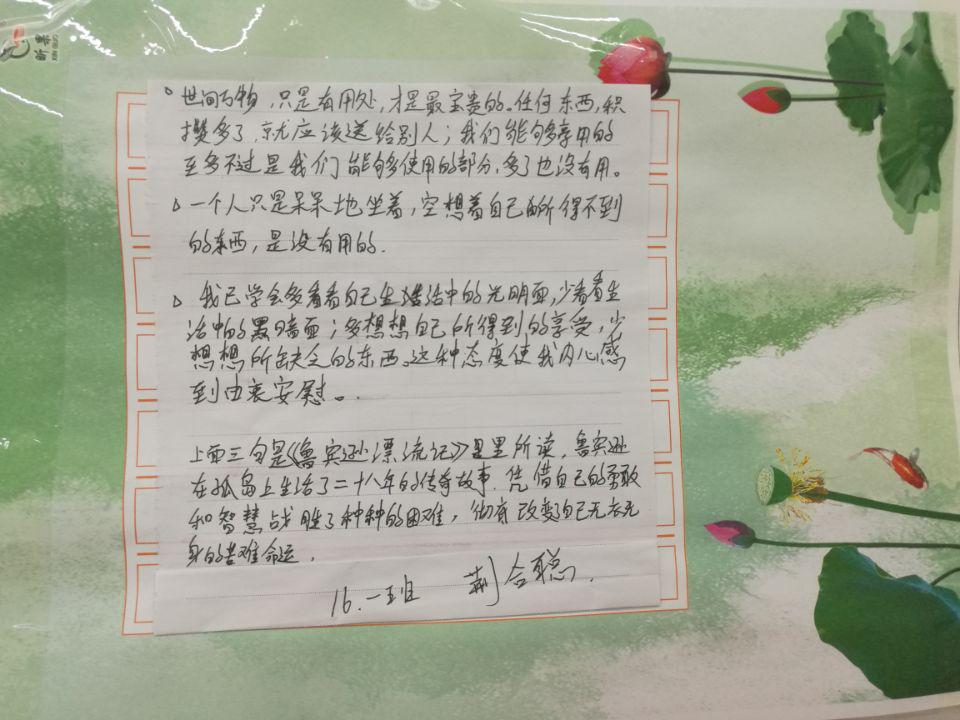 世间万物,只是有用处,才是最宝贵的。任何东西,积
攒多了,就应该送给别人;我们能够享用的
至多不过是我们能够使用的部分,多了也没有用。
一个人只是呆呆地坐着,空想着自己所得不到
的东西,是没有用的.
我已学会多看看自己生活中的光明面,少看看生
活中的黑暗面;多想想自己所得到的享受,少
想想所缺乏的东西。这种态度使我内心感
到由衷安慰。
上面三句是《鲁宾逊漂流记》里所读,鲁宾逊
在孤岛上生活了二十八年的传奇故事.凭借自己的勇敢
和智慧战胜了种种的困难,彻底改变了自己无衣无
食的苦难命运.
16.一班 荆合聪.